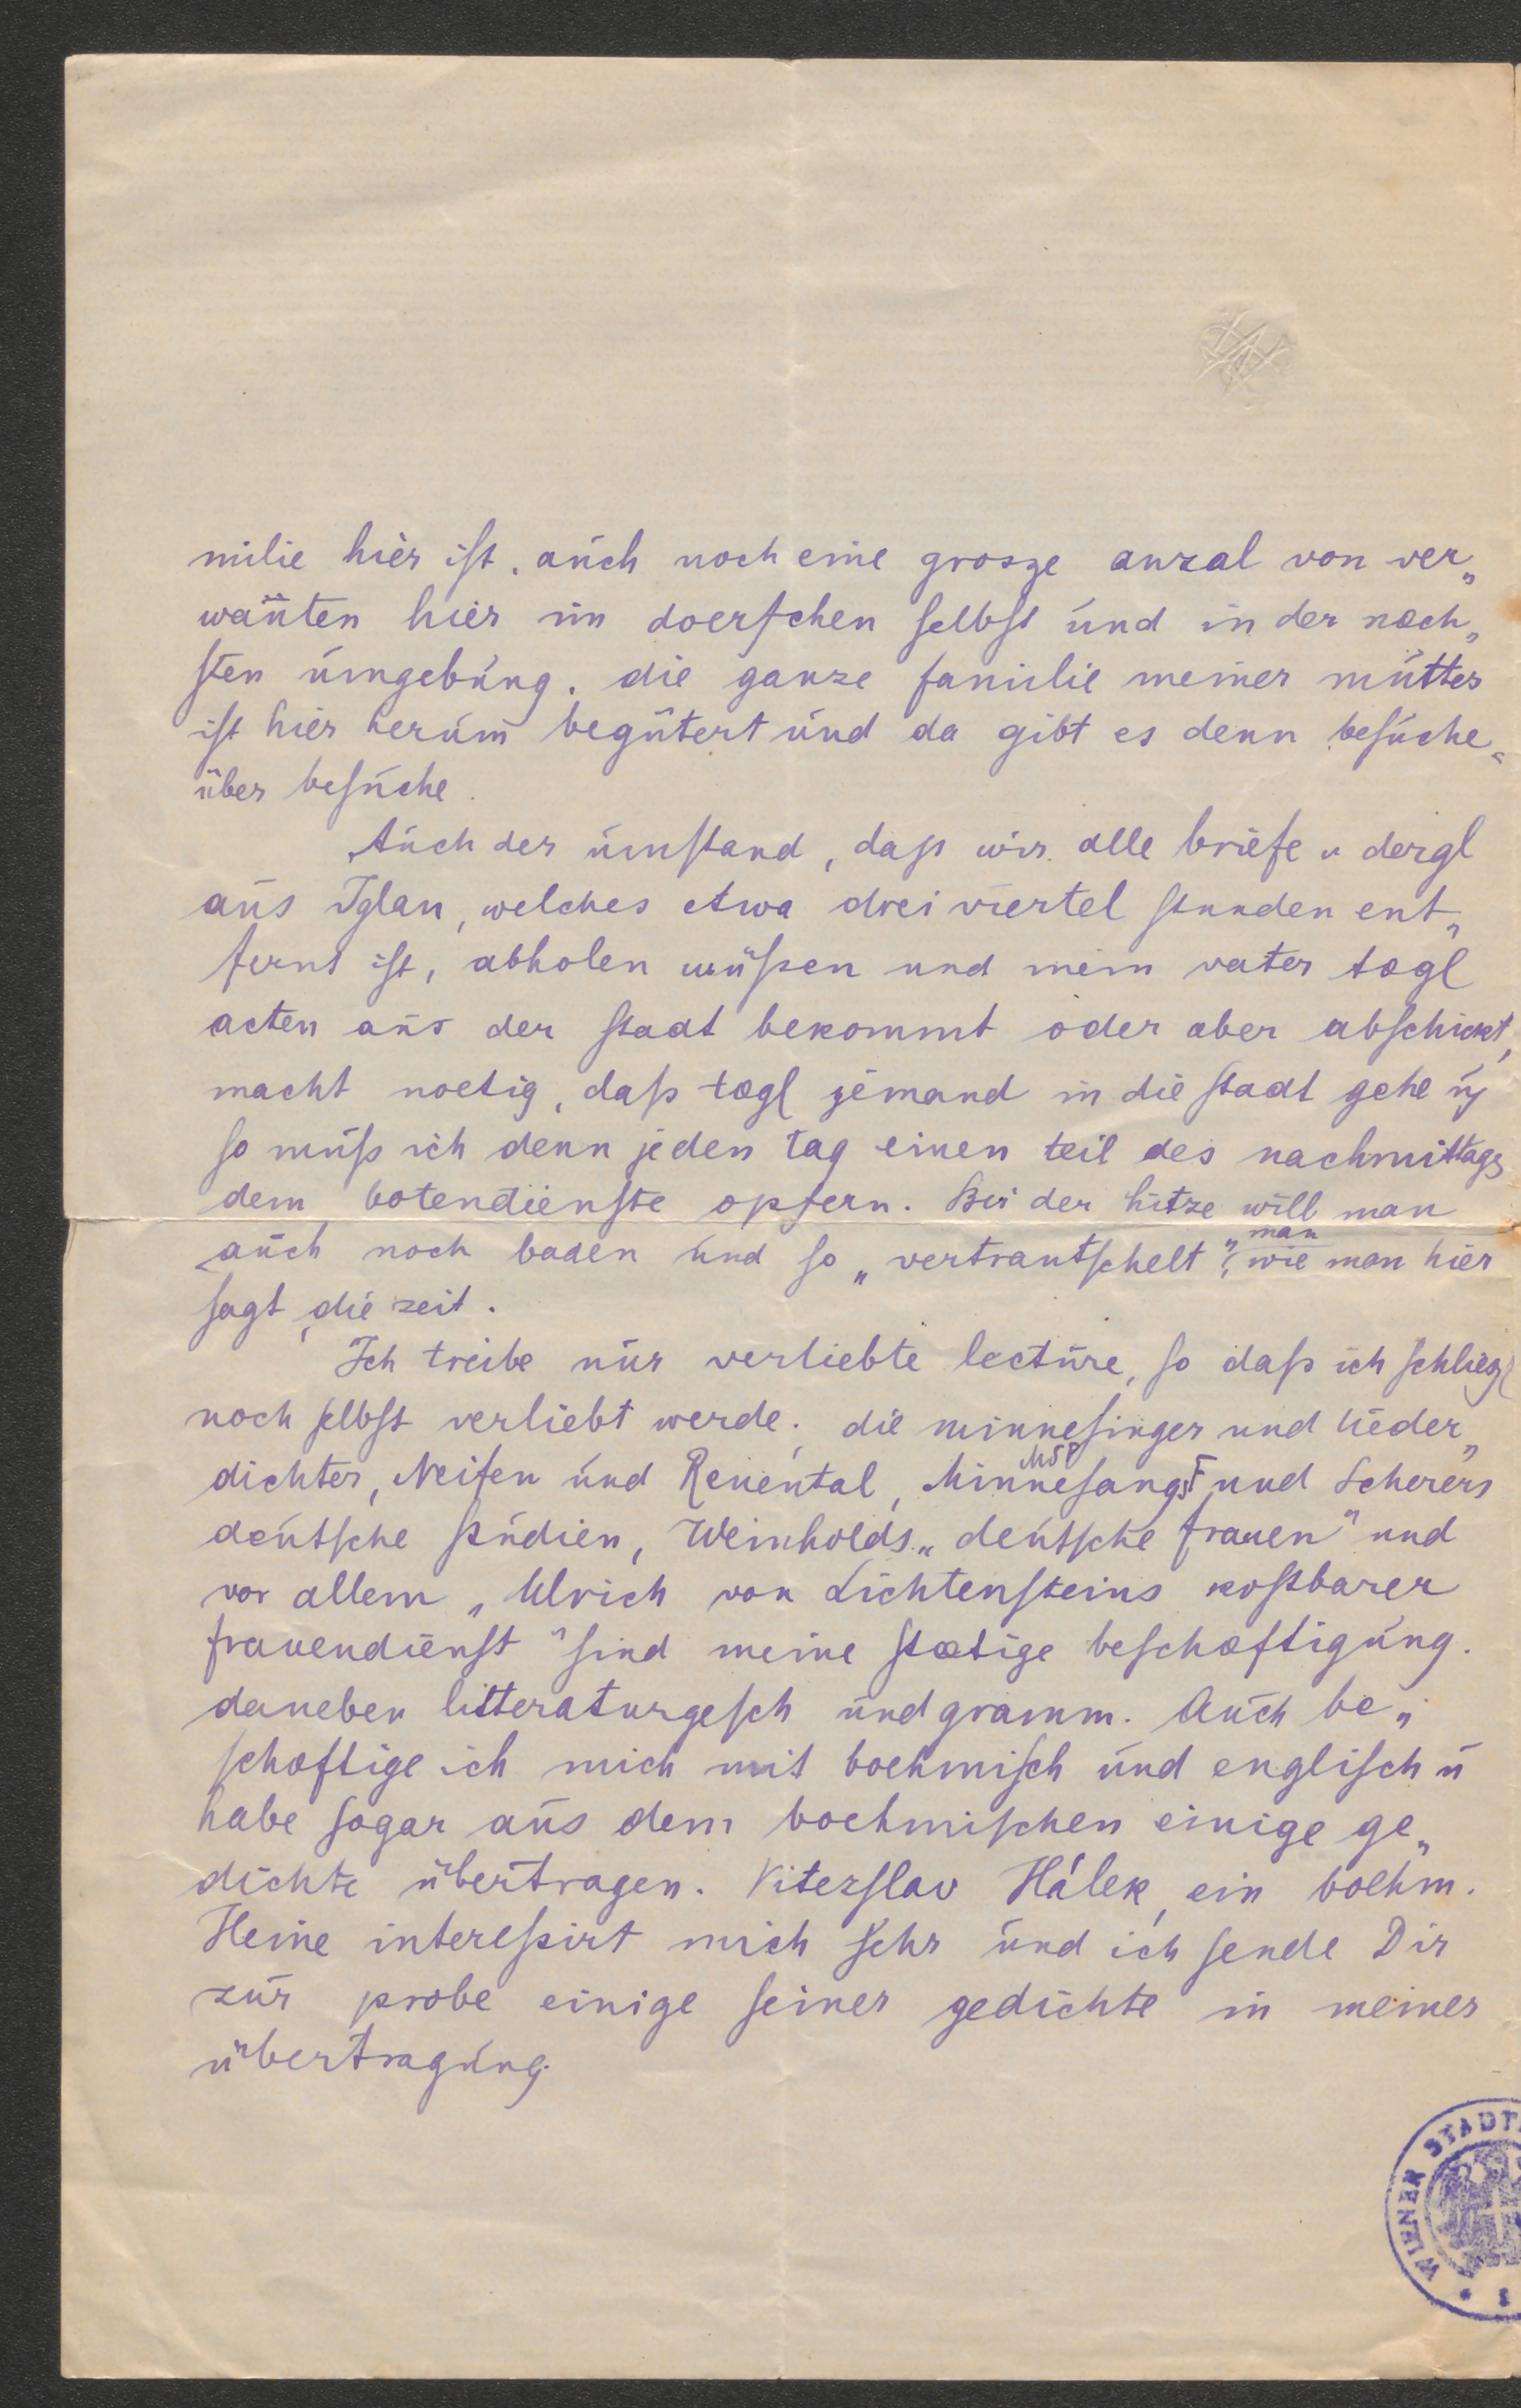 milie hier ist. auch noch eine grosze anzal von ver„
wanten hier im doerfchen selbst und in der næch„
sten umgebung. die ganze familie meiner mutter
ist hier herum begütert und da gibt es denn besuche„
über besuche.
Auch der umstand, daß wir alle briefe u dergl
aus Iglau, welches etwa drei viertel stunden ent„
fernt ist, abholen müßen und mein vater tægl
acten aus der stadt bekommt oder aber abschickt,
macht noetig, daß tægl jemand in die stadt gehe u
so muß ich denn jeden tag einen teil des nachmittags
dem botendienste opfern. Bei der hitze will man
auch noch baden und so „vertrantschelt“ man, wie man hier
sagt, die zeit.
Ich treibe nur verliebte lectüre, so daß ich schliesz
noch selbst verliebt werde; die minnesinger und lieder„
dichter, Neifen und Reuental, Minnesangs und Scherers
deutsche studien, Weinholds „deutsche frauen“ und
vor allem „Ulrich von Lichtensteins kostbarer
frauendienst“ sind meine stætige beschæftigung.
daneben litteraturgesch und gramm. Auch be„
schæftige ich mich mit boehmisch und englisch u
habe sogar aus dem boehmischen einige ge„
dichte übertragen. Vitezslav Hálek, ein boehm.
Heine interessirt mich sehr und ich sende Dir
zur probe einige seiner gedichte in meiner
übertragung.
WIENER STADT